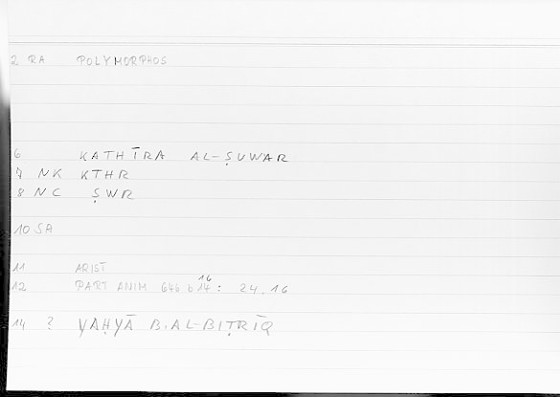 2 RA POLYMORPHOS
6 KATHĪRA AL-ṢUWAR
7 NK KTHR
8 NC ṢWR
10 SA
11 ARIST
12 PART ANIM 646 b 14 16 : 24.16
14 ? YAḤYĀ B. AL-BIṬRĪQ